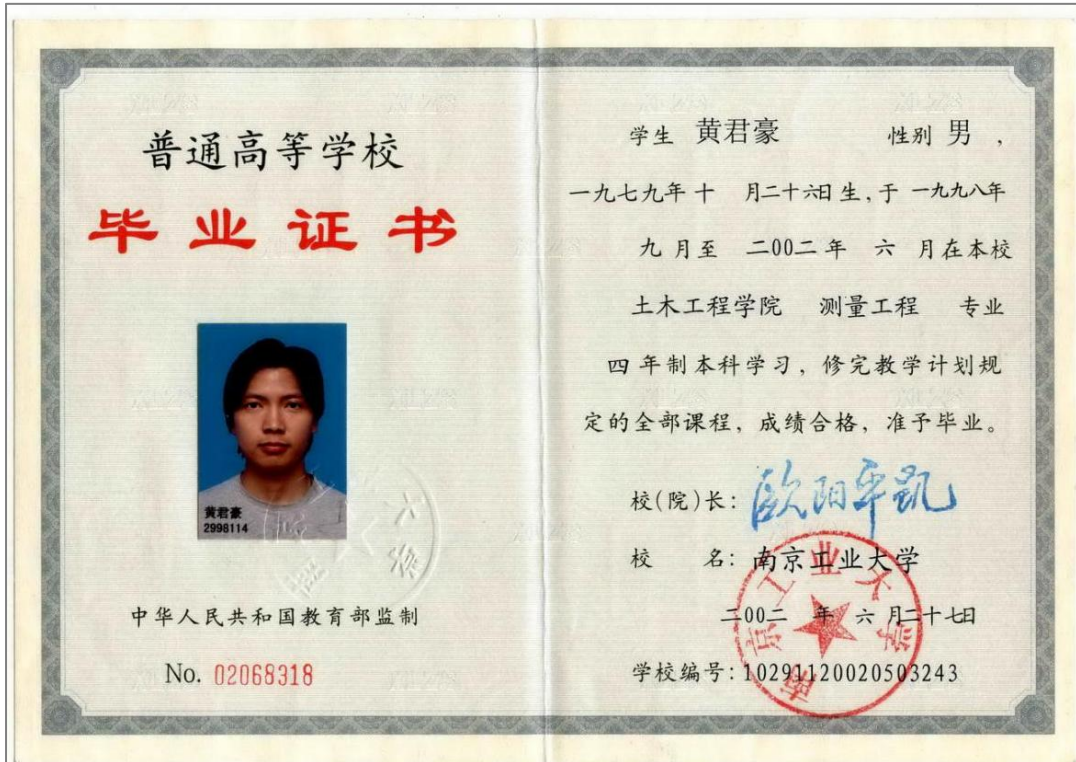 普通高等学校
毕业证书
黄君豪
2998114
中华人民共和国教育部监制
No. 02068318
学生 黄君豪 性别 男,
一九七九年十 月二十六日生,于一九九八年
九月至 二00二年 六 月在本校
土木工程学院 测量工程 专业
四年制本科学习,修完教学计划规
定的全部课程,成绩合格,准予毕业。
校(院)长:欧阳平凯
校 名:南京工业大学
二00二 年 六 月二十七日
学校编号:10291120020503243
南京工业大学